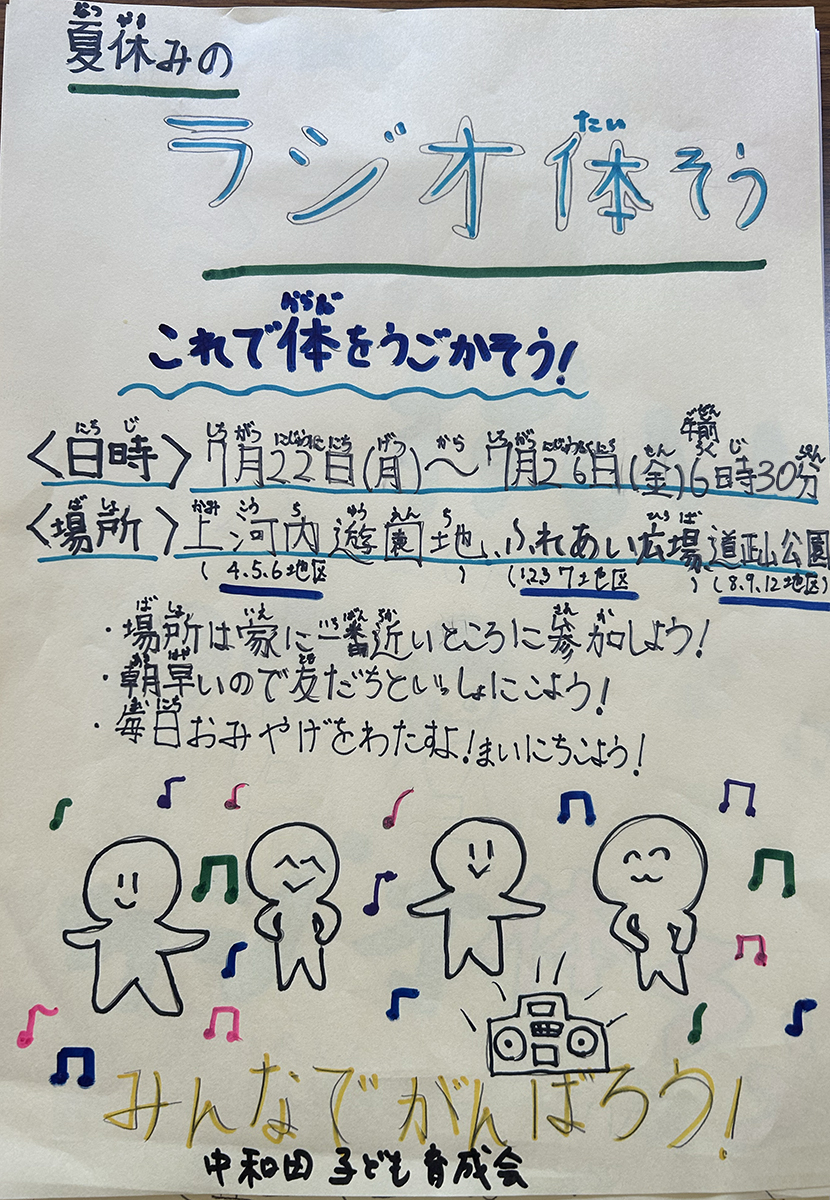 夏休みの
ラジオ体そう
これで体をうごかそう!
〈日時〉7月22日(月)〜7月26日(金)午前6時30分
〈場所〉上河内遊園地、ふれあい広場、道正山公園
(4.5.6地区) (1.2.3.7地区) (8.9.12地区)
・場所は家に一番近いところに参加しよう!
・朝早いので友だちといっしょにこよう!
・毎日おみやげをわたすよ!まいにちこよう!
みんなでがんばろう!
中和田子ども育成会